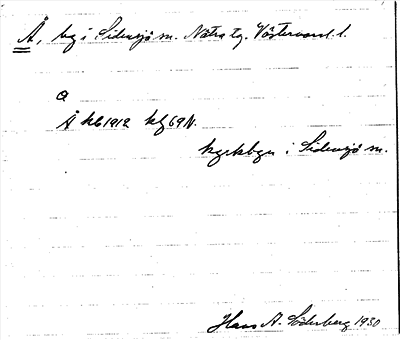 Å, by i Sidensjö sn. Nätra tg. Västernorrl. l.
a
Å kb 1912 klg 69 N.
kyrkbyn i Sidensjö sn.
Hans A. Söderberg 1930